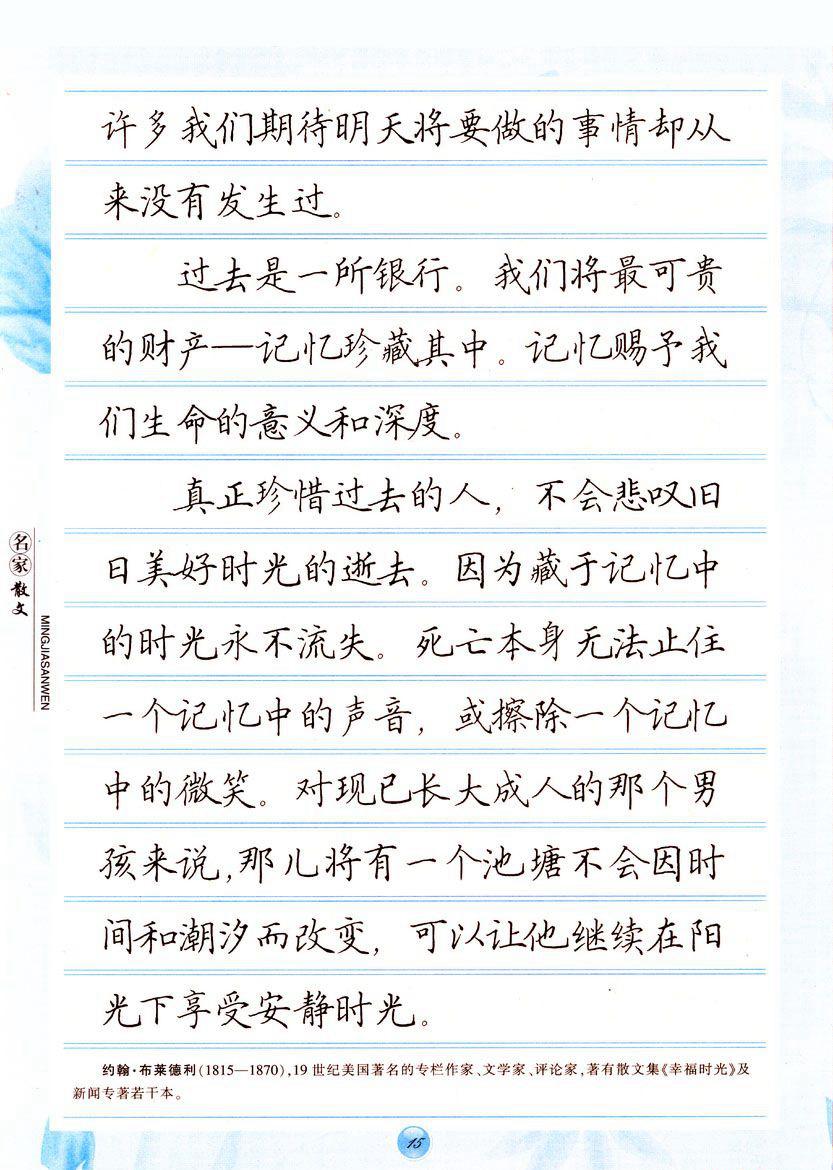 许多我们期待明天将要做的事情却从
来没有发生过。
过去是一所银行。我们将最可贵
的财产——记忆珍藏其中。记忆赐予我
们生命的意义和深度。
真正珍惜过去的人，不会悲叹旧
日美好时光的逝去。因为藏于记忆中
的时光永不流失。死亡本身无法止住
一个记忆中的声音，或擦除一个记忆
中的微笑。对现已长大成人的那个男
孩来说,那儿将有一个池塘不会因时
间和潮汐而改变，可以让他继续在阳
光下享受安静时光。
约翰·布莱德利(1815—1870),19世纪美国著名的专栏作家、文学家、评论家,著有散文集《幸福时光》及
新闻专著若干本。
名家散文
MINGJIASANWEN
15